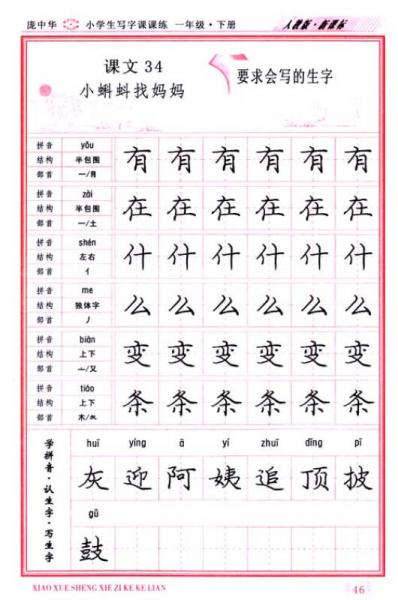 庞中华 小学生写字课课练 一年级·下册 人教版·新课标
课文34
小蝌蚪找妈妈
要求会写的生字
拼音 yǒu
结构 半包围
部首 一/月
有有有有有有
拼音 zài
结构 半包围
部首 一/土
在在在在在在
拼音 shén
结构 左右
部首 亻
什什什什什什
拼音 me
结构 独体字
部首 丿
么么么么么么
拼音 biàn
结构 上下
部首 亠/又
变变变变变变
拼音 tiáo
结构 上下
部首 木/夂
条条条条条条
学拼音·认生字·写生字
huī yíng ā yí zhuī dǐng pī
灰 迎 阿 姨 追 顶 披
gǔ
鼓
XIAO XUE SHENG XIE ZI KE KE LIAN
46